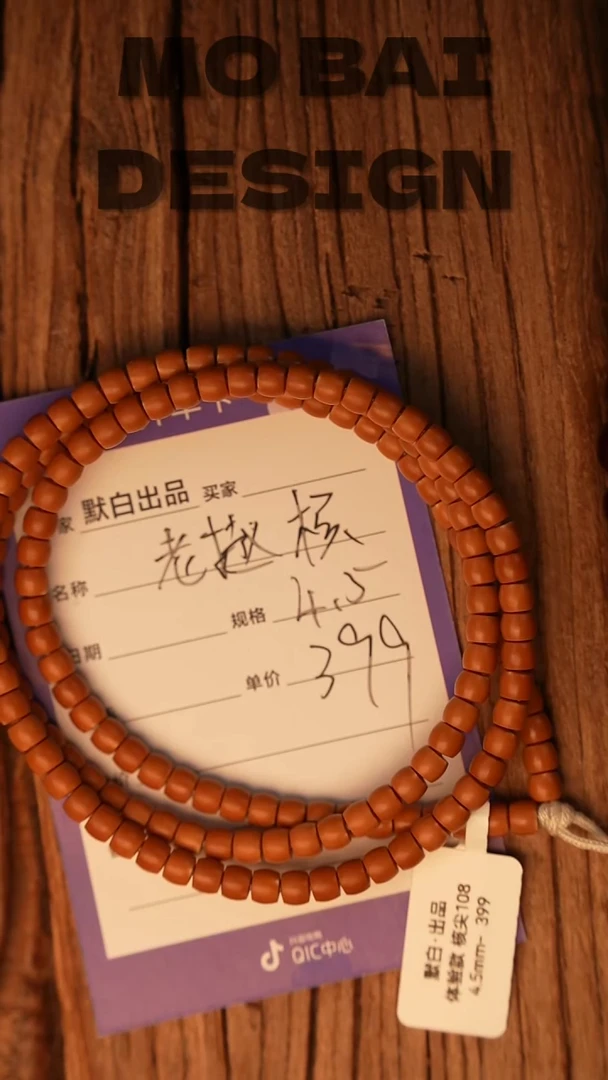 MO BAI
DESIGN
家 默白出品 买家
名称 老挝 核
日期 规格 4.5
单价 399
抖音电商
QIC中心
默白·出品
体验款 核尖108
4.5mm- 399